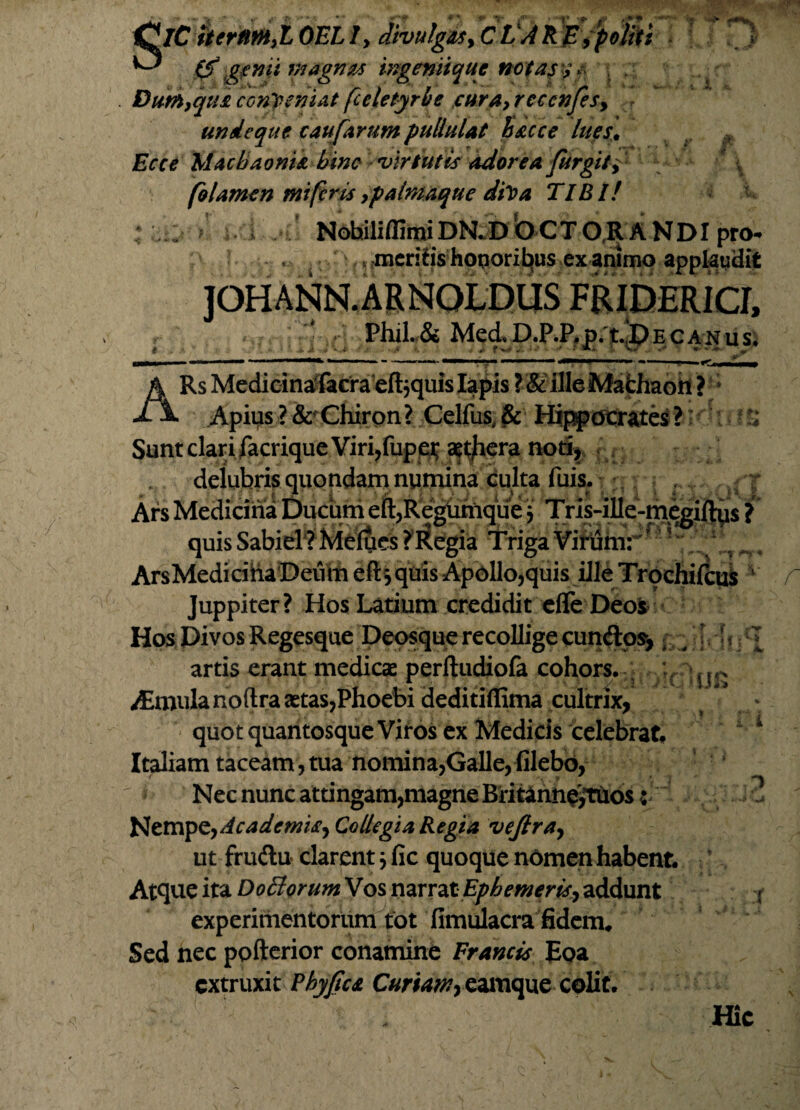 SIC iterum,LOELI, divulgas, CLARE,politi
& genii magnas ingeniique notas;
Dum,quæ conveniat sceletyrbe cura, recenses,
undeque causarum pullulat hæcce lues.
Ecce Machaoniæ hinc virtutis adorea surgit,
solamen miseris,palmaque diva TIBI!
Nobilissimi DN.DOCTORANDI pro-
meritis honoribus ex animo applaudit
JOHANN.ARNOLDUS FRIDERICI,
Phil.& Med.D.P.P.p.t.DECANUS.
ARs Medicina sacra est;quis Iapis?& ille Machaon?
Apius?& Chiron? Celsus,& Hippocrates?
Sunt clari sacrique Viri,super æthera noti,
delubris quondam numina culta suis.
Ars Medicina Ducum est,Regumque; Tris-ille-megistus?
quis Sabiel?Mesues?Regia Triga Virûm:
ArsMedicina Deûm est; quis Apollo,quis ille Trochiscus
Juppiter? Hos Latium credidit esse Deos
Hos Divos Regesque Deosque recollige cunctos,
artis erant medicæ perstudiosa cohors.
Æmula nostra ætas,Phoebi deditissima cultrix,
quot quantosque Viros ex Medicis celebrat.
Italiam taceam, tua nomina,Galle,silebo,
Nec nunc attingam,magne Britanne,tuos:
Nempe,Academiæ, Collegia Regia vestra,
ut fructu clarent; sic quoque nomen habent.
Atque ita Doctorum Vos narrat Ephemeris, addunt
experimentorum tot simulacra fidem.
Sed nec posterior conamine Francis Eoa
extruxit Physicæ Curiam, eamque colit.
Hic